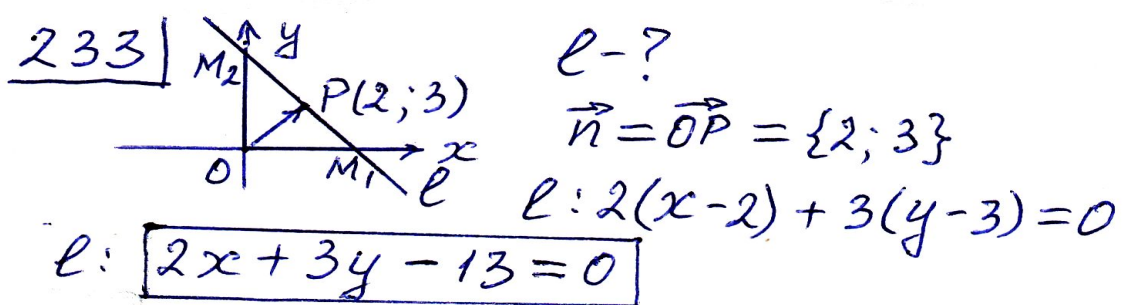 233
y
M₂
P(2; 3)
O
M₁
x
ℓ
ℓ - ?
n⃗ = O⃗P⃗ = {2; 3}
ℓ: 2(x-2) + 3(y-3) = 0
ℓ: 2x + 3y - 13 = 0